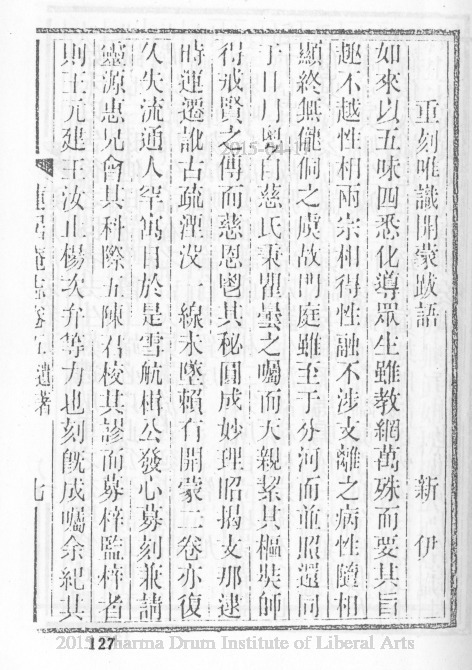 重刻唯識開蒙跋語　新伊
如來以五味四悉化導眾生雖教網萬殊而要其旨
趣不越性相兩宗相得性融不涉支離之病性隨相
顯終無儱侗之虞故門庭雖至于分河而並照還同
于日月粵自慈氏秉瞿曇之囑而天親絜其樞奘師
得戒賢之傳而慈恩鬯其秘圓成妙理昭揭支那逮
時運遷訛古疏湮沒一線未墜賴有開蒙二卷亦復
久失流通人罕寓目於是雪航楫公發心募刻兼請
靈源惠兄會其科際五陳君校其謬而募梓監梓者
則王元建王汝止楊次弁等力也刻既成囑余紀其
蓮居庵志卷五遺著　七
127
2015 Dharma Drum Institute of Liberal Arts